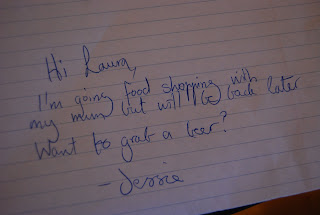 Hi Laura,
I'm going food shopping with
my mum but will be back later
Want to grab a beer?
- Jessie